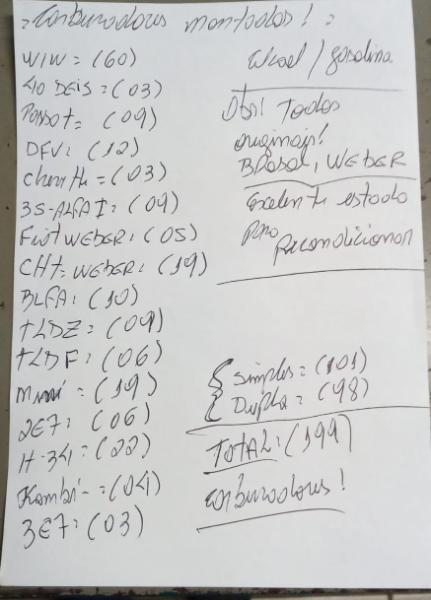 = Carburadores montados! =
WIW = (60)
40 DEIS = (03)
Passat = (09)
DFV: (12)
Chevette = (03)
35-ALFA I: (09)
Fiat WEBER: (05)
CHT = WEBER: (19)
BLFA: (10)
TLDZ = (09)
TLDF: (06)
Mini = (19)
2E7: (06)
H-34: (22)
Kombi - = (04)
3E7: (03)
Alcool / gasolina
Obs! Todos
originais!
BRosol, WEBER
Excelente estado
Para
Recondicionar
Simples = (101)
Dupla = (98)
TOTAL: (199)
Carburadores!